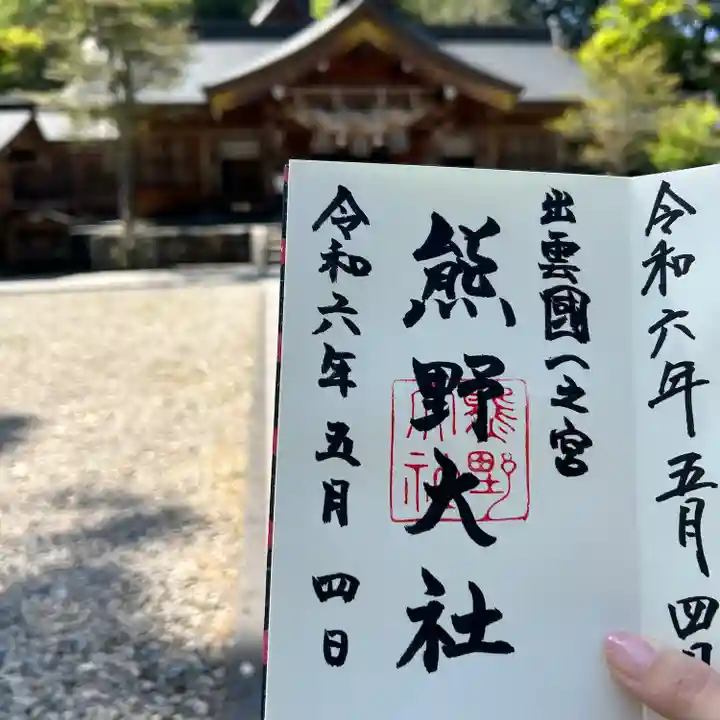 令和六年五月四日
出雲國一之宮
熊野大社
熊野大社
令和六年五月四日